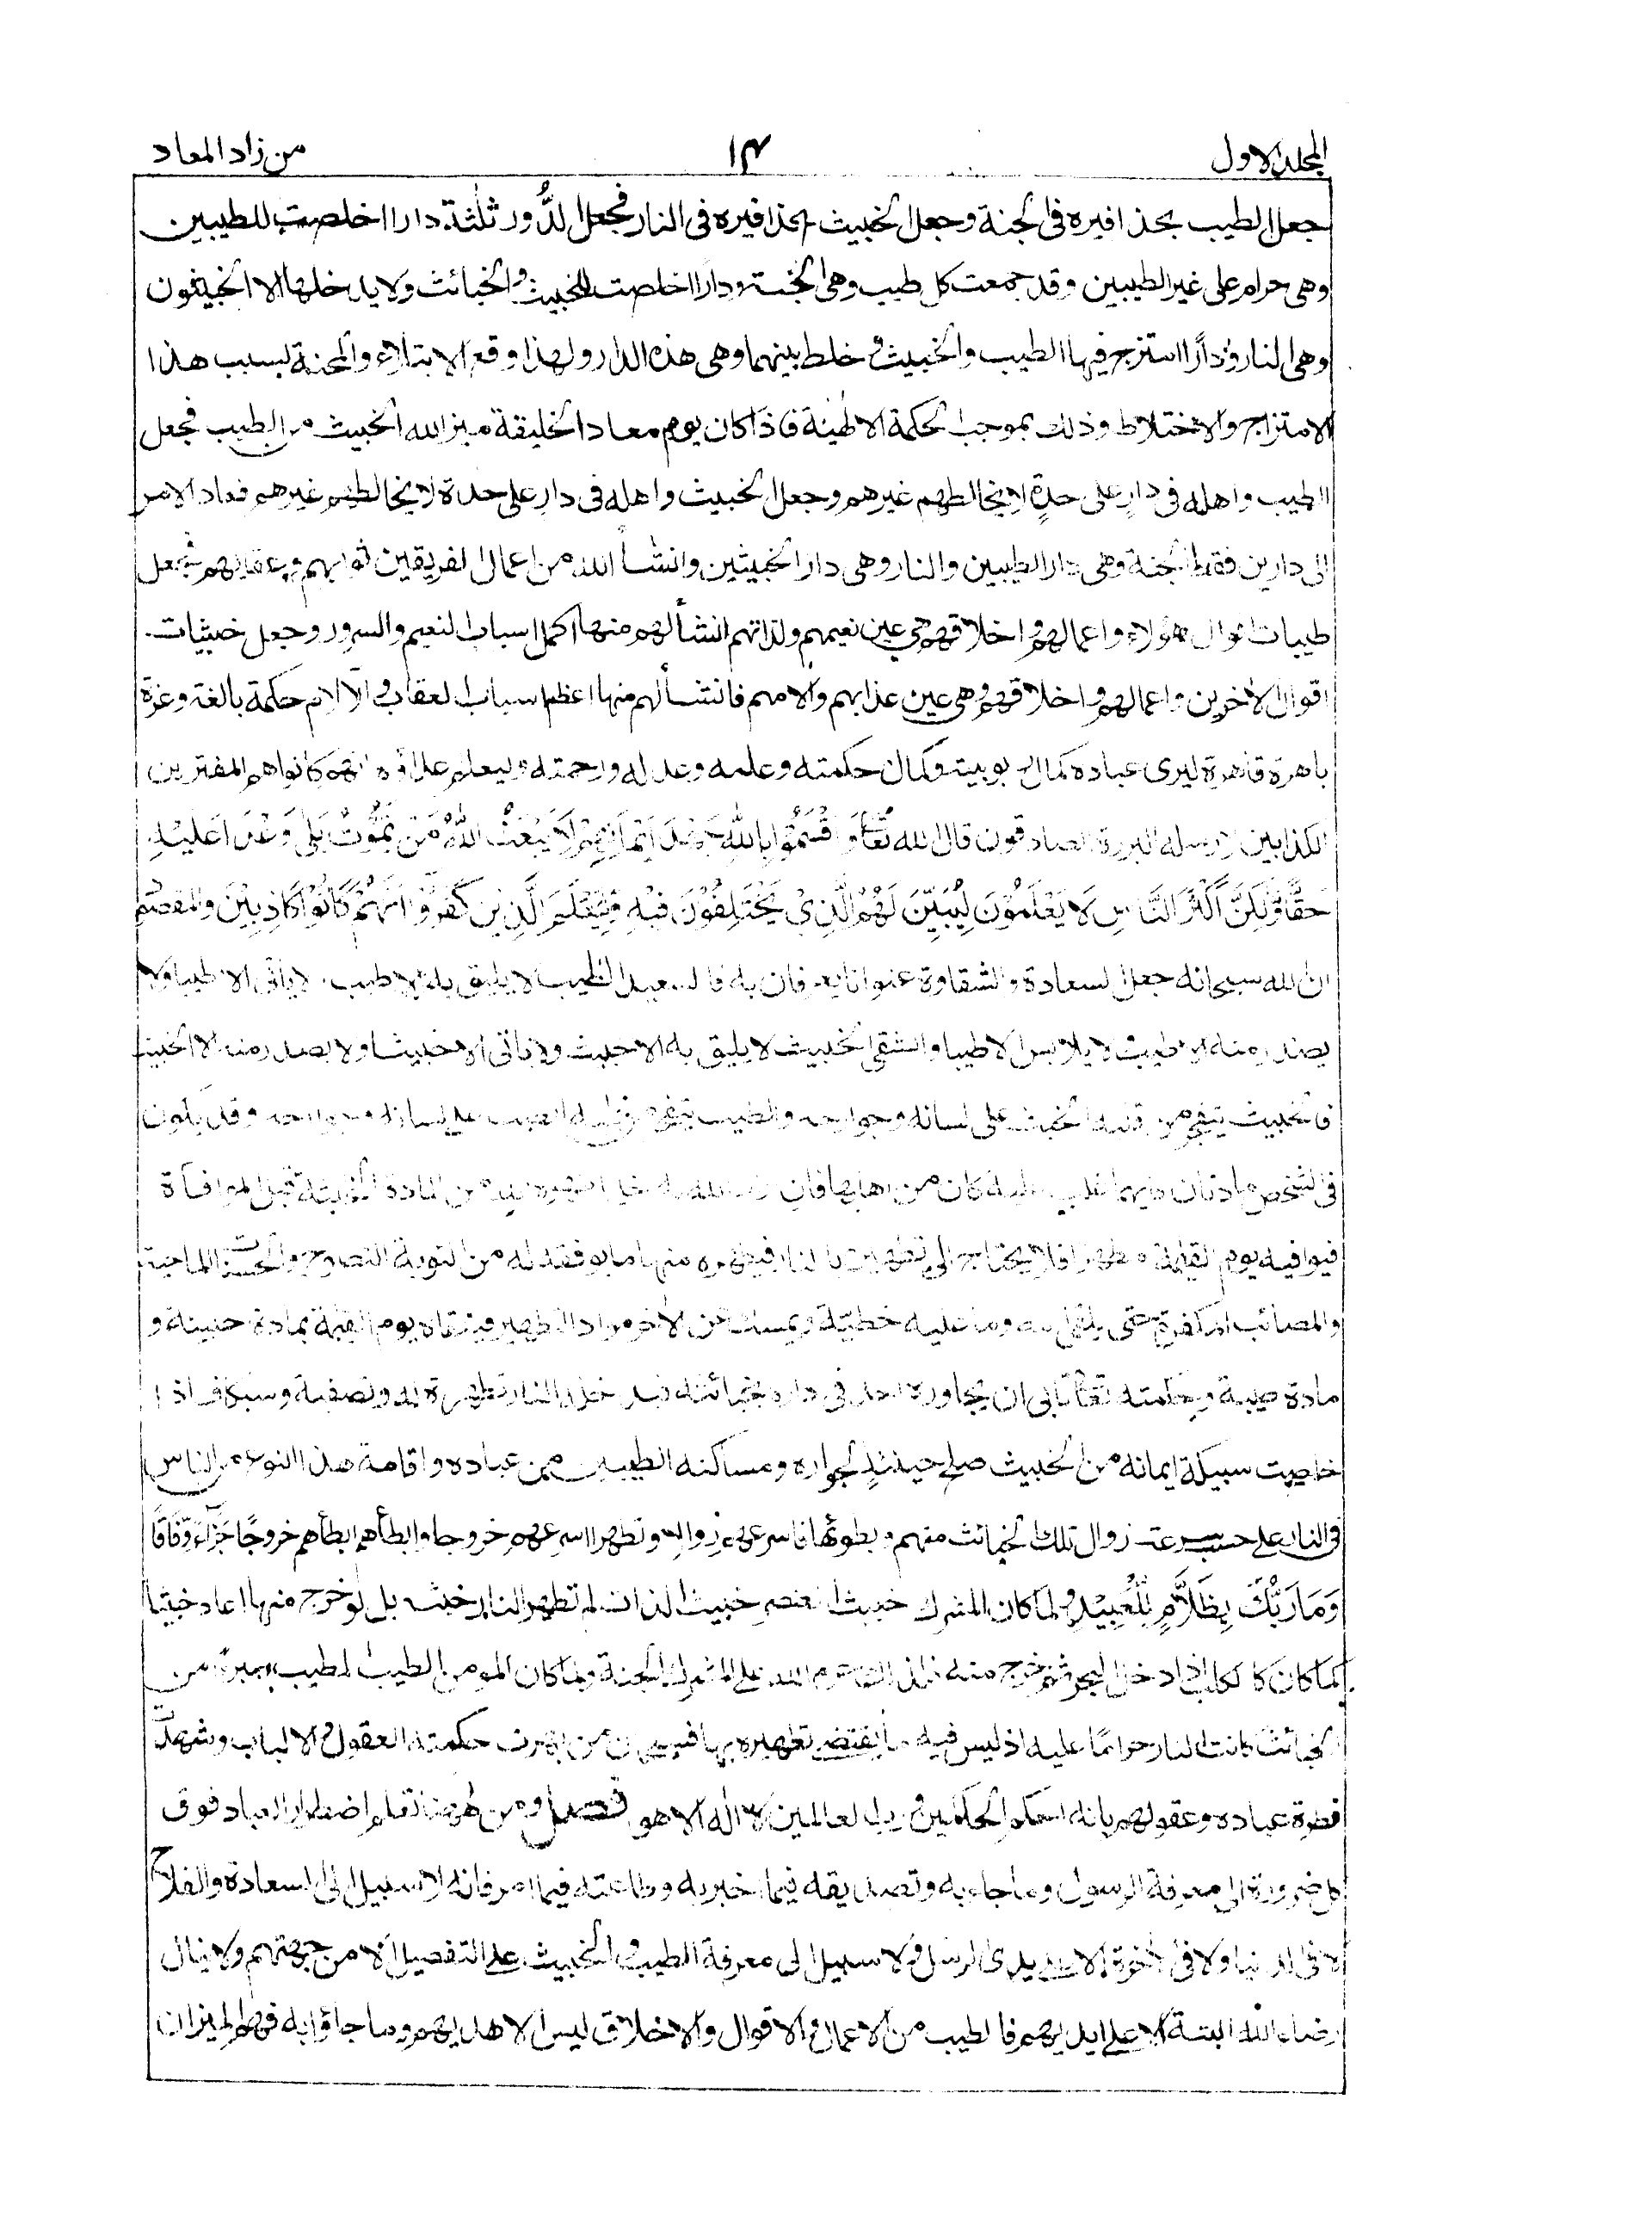 المجلد الاول
١٤
من زاد المعاد
جعل الطيب بحذافيره فى الجنة وجعل الخبيث بحذافيره فى النار فجعل الدُّور ثلٰثة دارا اخلصت للطيبين
وهى حرام على غير الطيبين وقد جمعت كل طيب وهى الجنة ودارا اخلصت للخبيث والخبائث ولا يدخلها الا الخبيثون
وهى النار ودارًا امتزج فيها الطيب والخبيث و خلط بينهما وهى هذه الدار ولهذا وقع الابتلاء والمحنة بسبب هذا
الامتزاج والاختلاط وذلك بموجب الحكمة الالٰهية فاذا كان يوم معاد الخليقة ميز الله الخبيث من الطيب فجعل
الطيب واهله فى دارٍ على حدةٍ لا يخالطهم غيرهم وجعل الخبيث واهله فى دارٍ على حدة لا يخالطهم غيرهم فعاد الامر
الى دارين فقط الجنة وهى دار الطيبين والنار وهى دار الخبيثين وانشأ الله من اعمال الفريقين ثوابهم وعقابهم فجعل
طيبات اقوال هؤلاء واعمالهم و اخلاقهم هى عين نعيمهم ولذاتهم انشأ لهم منها اكمل اسباب النعيم والسرور وجعل خبيثات
اقوال الاخرين واعمالهم و اخلاقهم وهى عين عذابهم والامهم فانشأ لهم منها اعظم اسباب العقاب و الآلام حكمة بالغة وعزة
باهرة قاهرة ليرى عباده كمال ربوبيته وكمال حكمته وعلمه وعدله ورحمته وليعلم اعداؤه انهم كانوا هم المفترين
الكذابين لا رسله البررة الصادقون قال الله تعا وَاَقْسَمُوْا بِاللّٰهِ جَهْدَ اَيْمَانِهِمْ لَا يَبْعَثُ اللّٰهُ مَنْ يَّمُوْتُ بَلٰى وَعْدًا عَلَيْهِ
حَقًّا وَّلٰكِنَّ اَكْثَرَ النَّاسِ لَا يَعْلَمُوْنَ لِيُبَيِّنَ لَهُمُ الَّذِىْ يَخْتَلِفُوْنَ فِيْهِ وَلِيَعْلَمَ الَّذِيْنَ كَفَرُوْا اَنَّهُمْ كَانُوْا كَاذِبِيْنَ والمقصود
ان الله سبحانه جعل السعادة والشقاوة عنوانا يعرفان به فالسعيد الطيب لا يليق به الا طيب ولا يأتى الا طيبا ولا
يصدر منه الا طيب ولا يلابس الا طيبا والشقى الخبيث لا يليق به الا خبيث ولا ياتى الا خبيثا ولا يصدر منه الا الخبيث
فالخبيث يتفجر من قلبه الخبث على لسانه وجوارحه والطيب يتفجر من قلبه الطيب على لسانه وجوارحه وقد يكون
فى الشخص مادتان فايهما غلب عليه كان من اهلها فان اراد الله به خيرا طهره من المادة الخبيثة قبل الموافاة
فيوافيه يوم القيٰمة مطهرا فلا يحتاج الى تطهيره بالنار فيطهره منها بما يوفقه له من التوبة النصوح والحسنات الماحية
والمصائب المكفرة حتى يلقى الله وما عليه خطيّة ويمسك عن الاخر مواد التطهير فيلقاه يوم القيٰمة بمادة خبيثة و
مادة طيبة وحكمته تعا تأبى ان يجاوره احد فى داره بخبائثه فيدخله النار تطهيرة له وتصفية وسبكا فاذا
خلصت سبيكة ايمانه من الخبيث صلح حينئذٍ لجواره ومساكنة الطيبين من عباده واقامة هذا النوع من الناس
فى النار على حسب سرعة زوال تلك الخبائث منهم و بطوئها فاسرعهم زوالا وتطهرا اسرعهم خروجا وابطأهم ابطأهم خروجًا جَزَآءً وِّفَاقًا
وَمَا رَبُّكَ بِظَلَّامٍ لِّلْعَبِيْدِ ولما كان المشرك خبيث العنصر خبيث الذات لم تطهر النار خبثه بل لو خرج منها اعاد خبيثا
كما كان كالكلب اذا دخل البحر ثم خرج منه فلذلك حرم الله على المشرك الجنة ولما كان المومن الطيب المطيب مبرءً من
الخبائث كانت النار حرامًا عليه اذ ليس فيه ما يقتضى تطهيره بها فسبحان من بهرت حكمته العقول و الالباب وشهدت
فطرة عباده وعقولهم بانه احكم الحاكمين و رب العالمين لا اله الا هو فصل ومن ههنا تعلم اضطرار العباد فوق
كل ضرورة الى معرفة الرسول وما جاء به وتصديقه فيما اخبر به وطاعته فيما امر فانه لا سبيل الى السعادة والفلاح
لا فى الدنيا ولا فى الاخرة الا على يدى الرسل و لا سبيل الى معرفة الطيب و الخبيث على التفصيل الا من جهتهم ولا ينال
رضاء الله البتة الا على ايديهم فالطيب من الاعمال و الاقوال والاخلاق ليس الا هديهم وما جاؤا به فهم الميزان